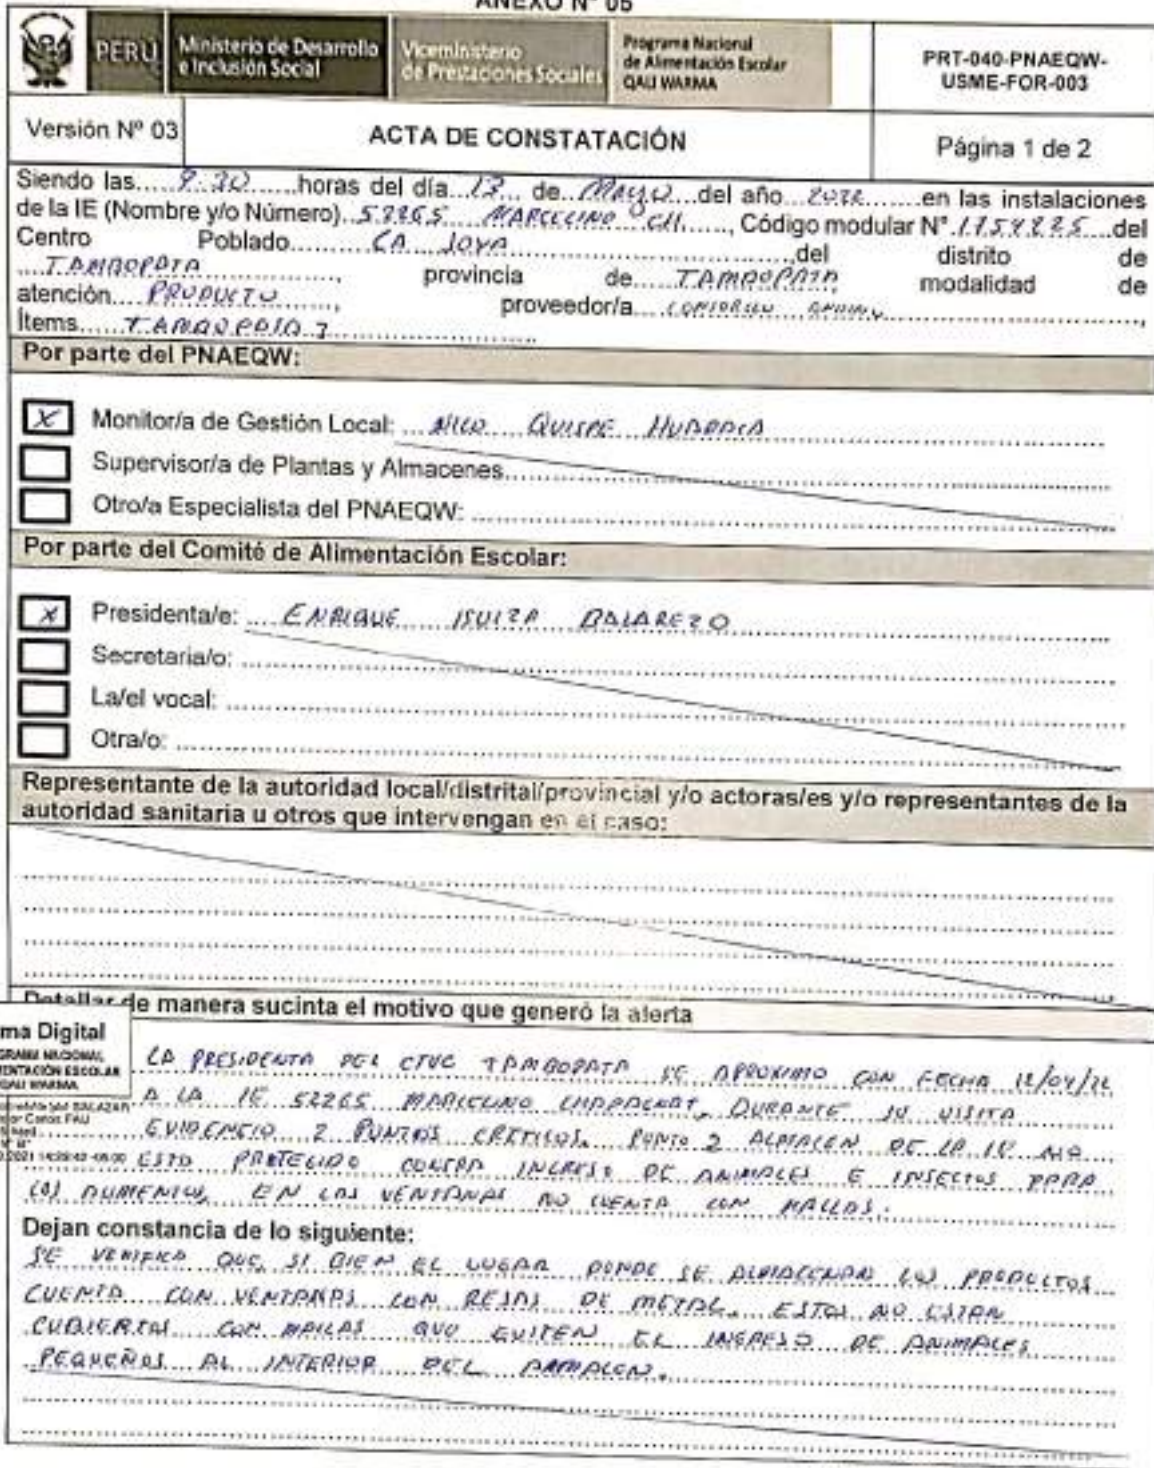 ANEXO N° 05
PERÚ Ministerio de Desarrollo e Inclusión Social Viceministerio de Prestaciones Sociales Programa Nacional de Alimentación Escolar QALI WARMA
PRT-040-PNAEQW-
USME-FOR-003
Versión Nº 03
ACTA DE CONSTATACIÓN
Página 1 de 2
Siendo las horas del día 13 de MAYO del año 2022 en las instalaciones
de la IE (Nombre y/o Número) 52265 MARCELINO CH., Código modular N° del
Centro Poblado LA JOYA, del distrito de
TAMBOPATA, provincia de TAMBOPATA, modalidad de
atención PRODUCTO, proveedor/a
Ítems TAMBOPATA
Por parte del PNAEQW:
X Monitor/a de Gestión Local: NICO QUISPE HUAMAN
Supervisor/a de Plantas y Almacenes
Otro/a Especialista del PNAEQW:
Por parte del Comité de Alimentación Escolar:
X Presidenta/e: ENRIQUE ISUIZA BALAREZO
Secretaria/o:
La/el vocal:
Otra/o:
Representante de la autoridad local/distrital/provincial y/o actoras/es y/o representantes de la
autoridad sanitaria u otros que intervengan en el caso:
Detallar de manera sucinta el motivo que generó la alerta
ma Digital
LA PRESIDENTA DEL CTVC TAMBOPATA SE APROXIMO CON FECHA 12/04/22
A LA IE 52265 MARCELINO DURANTE SU VISITA
EVIDENCIO 2 PUNTOS CRITICOS. PUNTO 2 ALMACEN DE LA IE NO
ESTA PROTEGIDO CONTRA INGRESO DE ANIMALES E INSECTOS PARA
LOS ALIMENTOS, EN LAS VENTANAS NO CUENTA CON MALLAS.
Dejan constancia de lo siguiente:
SE VERIFICA QUE SI BIEN EL LUGAR DONDE SE ALMACENAN LOS PRODUCTOS
CUENTA CON VENTANAS CON REJAS DE METAL, ESTAS NO ESTAN
CUBIERTAS CON MALLAS QUE EVITEN EL INGRESO DE ANIMALES
PEQUEÑOS AL INTERIOR DEL ALMACEN.